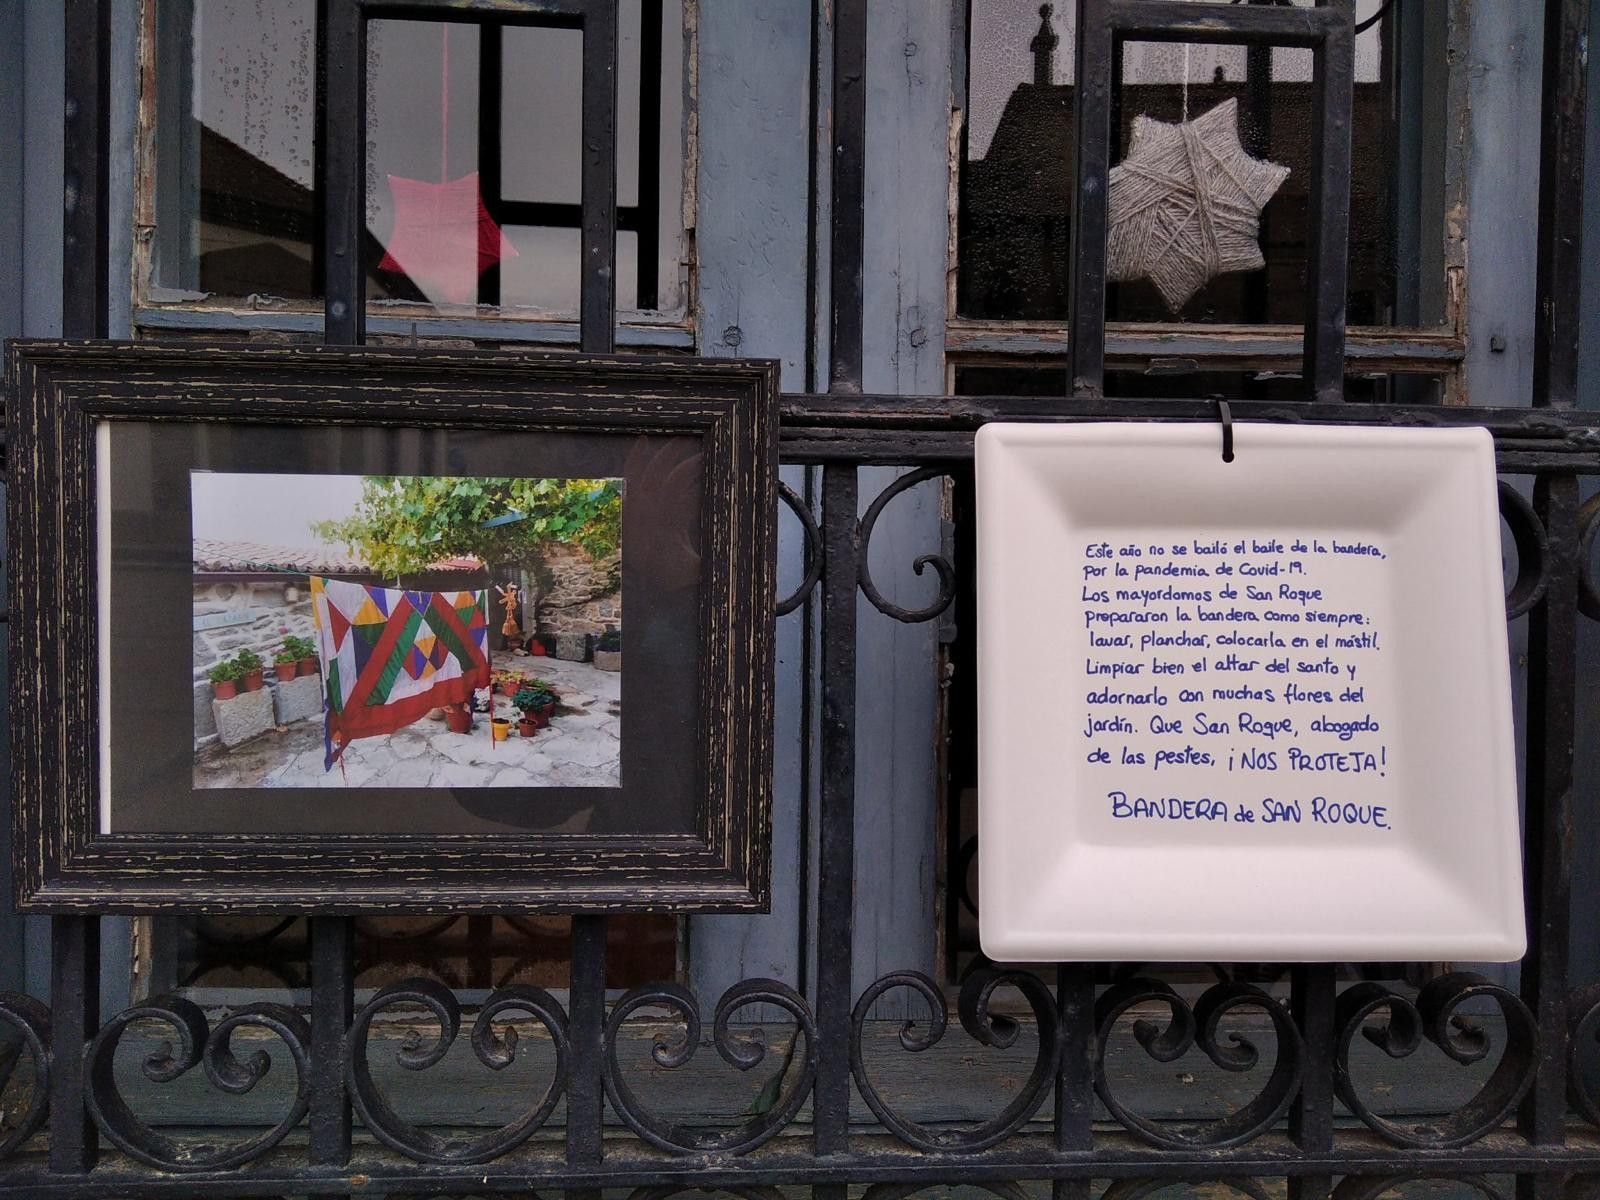 Este año no se bailó el baile de la bandera,
por la pandemia de Covid-19.
Los mayordomos de San Roque
prepararon la bandera como siempre:
lavar, planchar, colocarla en el mástil.
Limpiar bien el altar del santo y
adornarlo con muchas flores del
jardín. Que San Roque, abogado
de las pestes, ¡NOS PROTEJA!
BANDERA de SAN ROQUE.